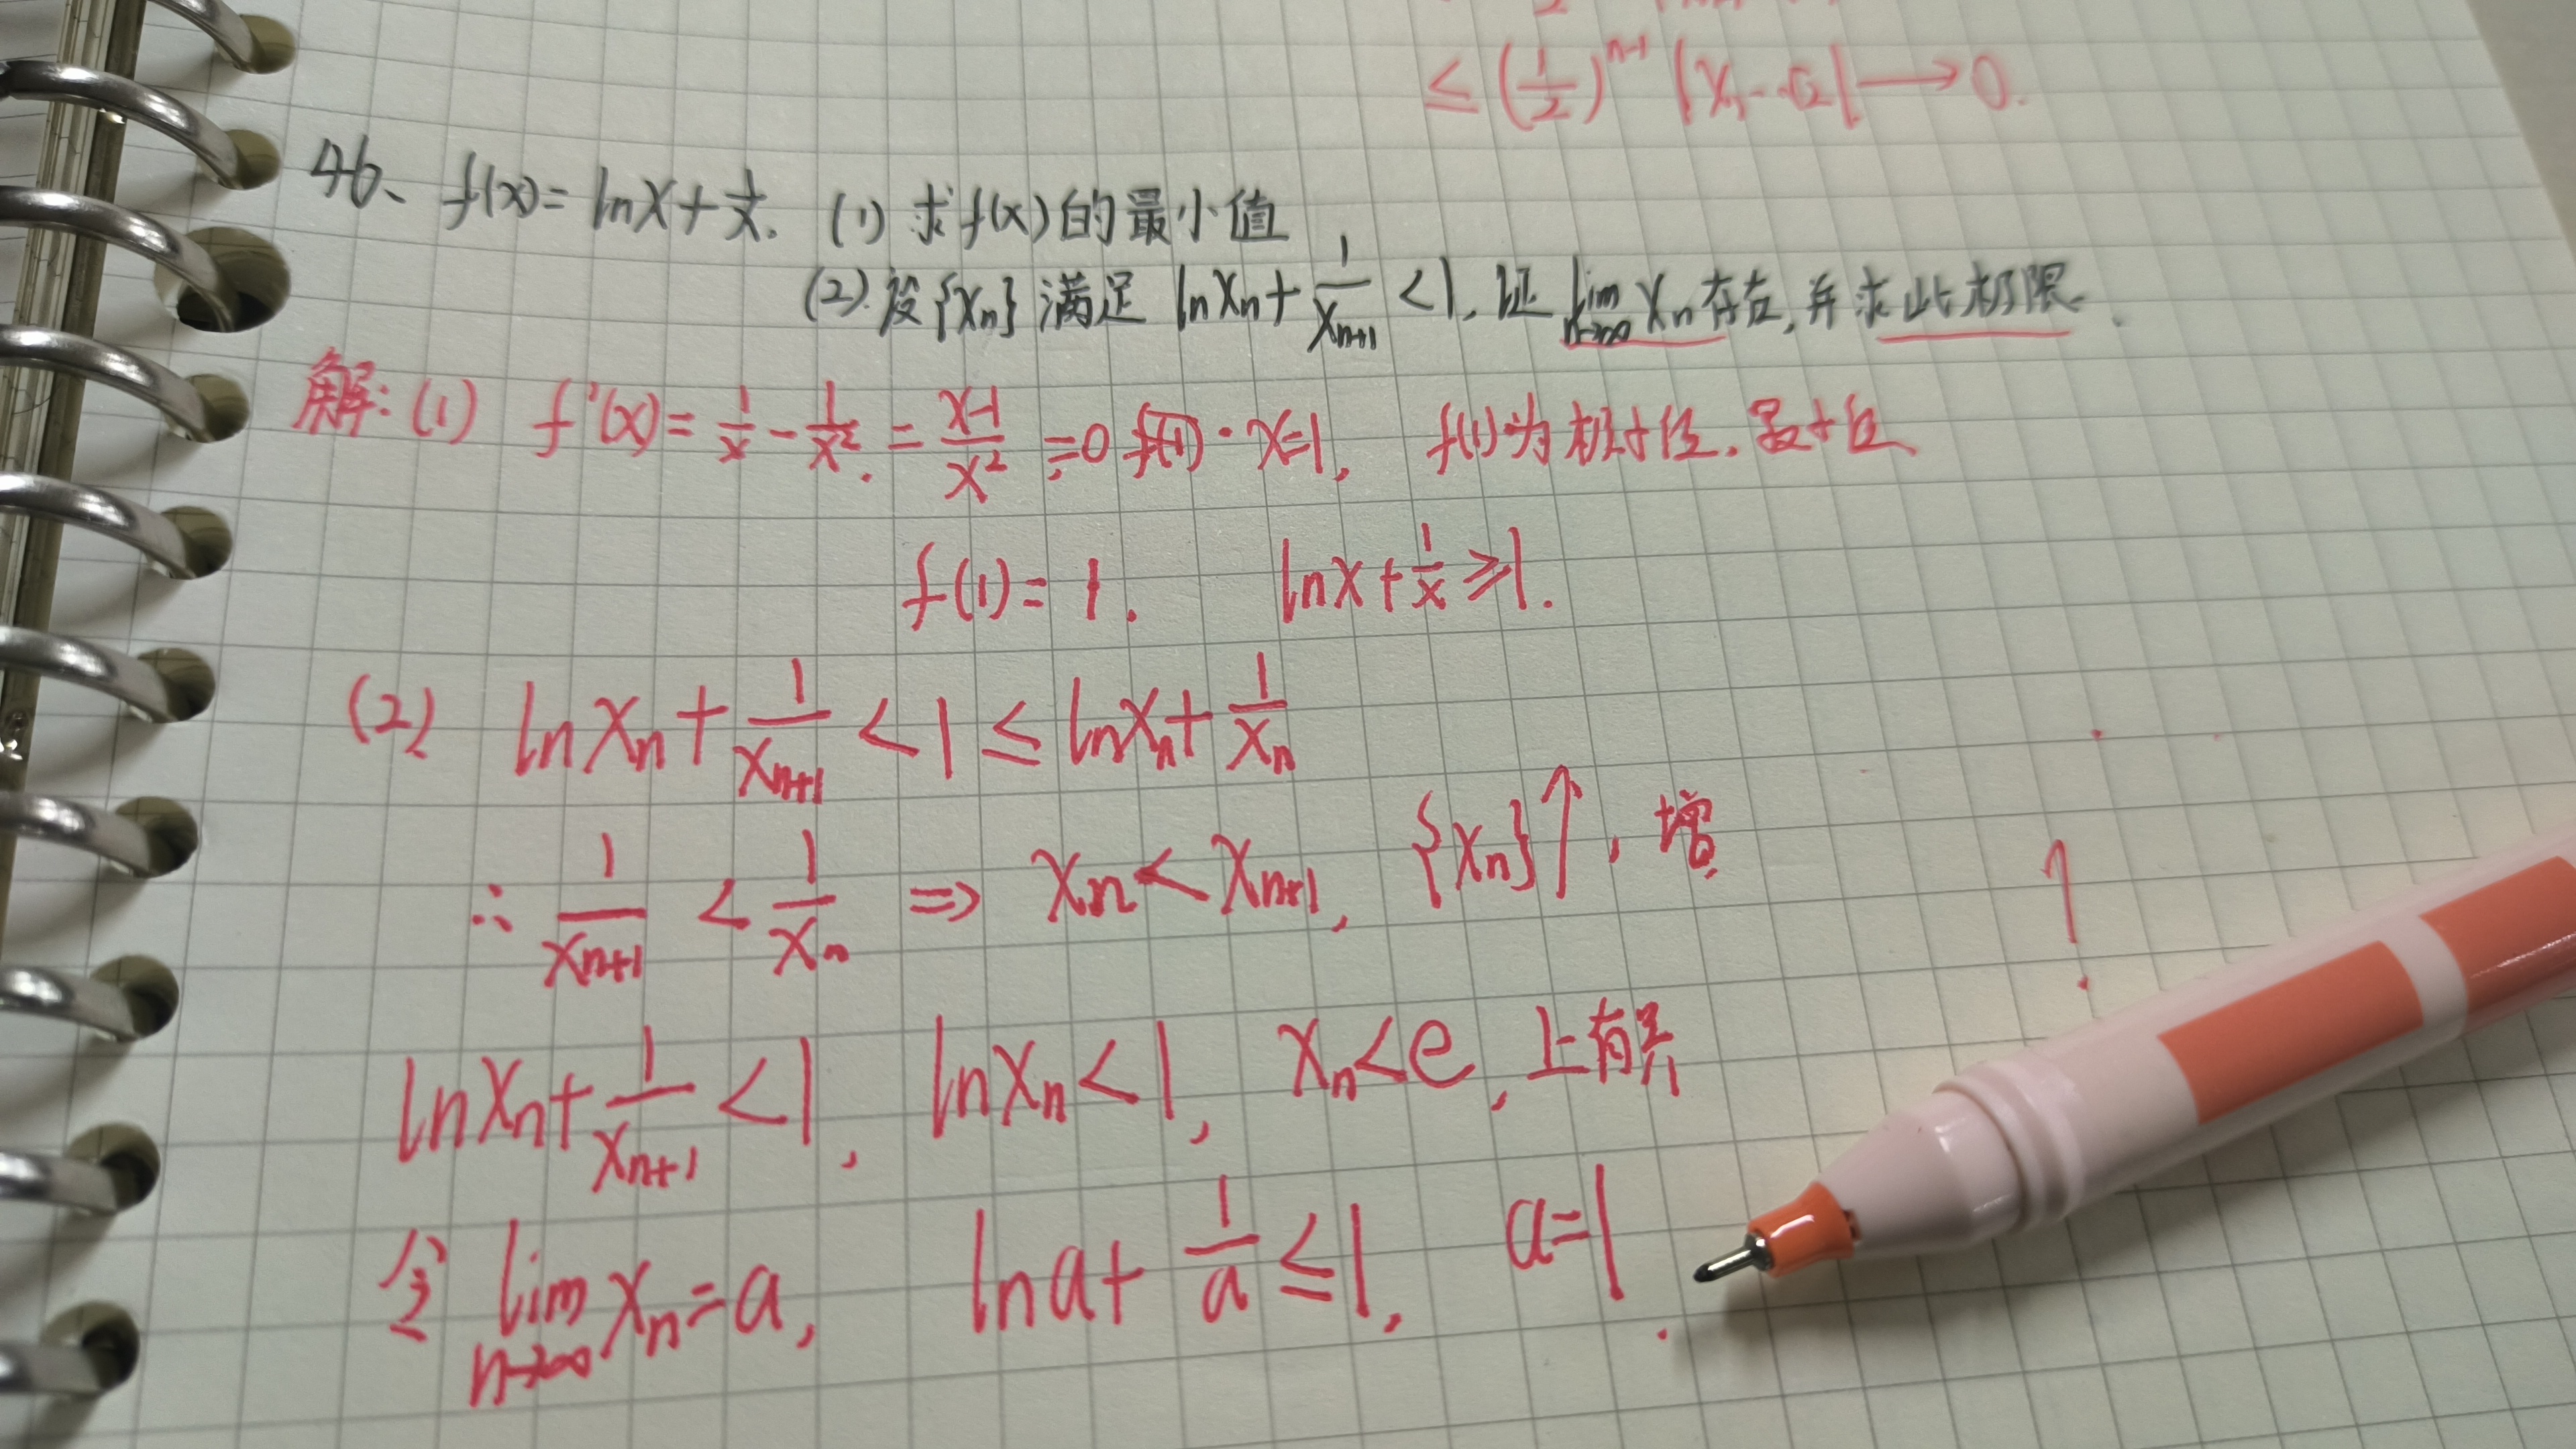 ≤ (1/2)^{n-1} |x_1 - √2| → 0.
46、 f(x) = lnx + 1/x. (1) 求f(x)的最小值
(2). 设{x_n} 满足 lnx_n + 1/x_{n+1} < 1, 证 lim_{n→∞} x_n 存在, 并求此极限.
解: (1) f'(x) = 1/x - 1/x². = (x-1)/x² = 0 · x=1, f(1)为极小值. 最小值
f(1) = 1. lnx + 1/x ≥ 1.
(2) lnx_n + 1/x_{n+1} < 1 ≤ lnx_n + 1/x_n
∴ 1/x_{n+1} < 1/x_n ⇒ x_n < x_{n+1}, {x_n}↑, 增
lnx_n + 1/x_{n+1} < 1, lnx_n < 1, x_n < e, 上有界
令 lim_{n→∞} x_n = a, lna + 1/a ≤ 1, a=1